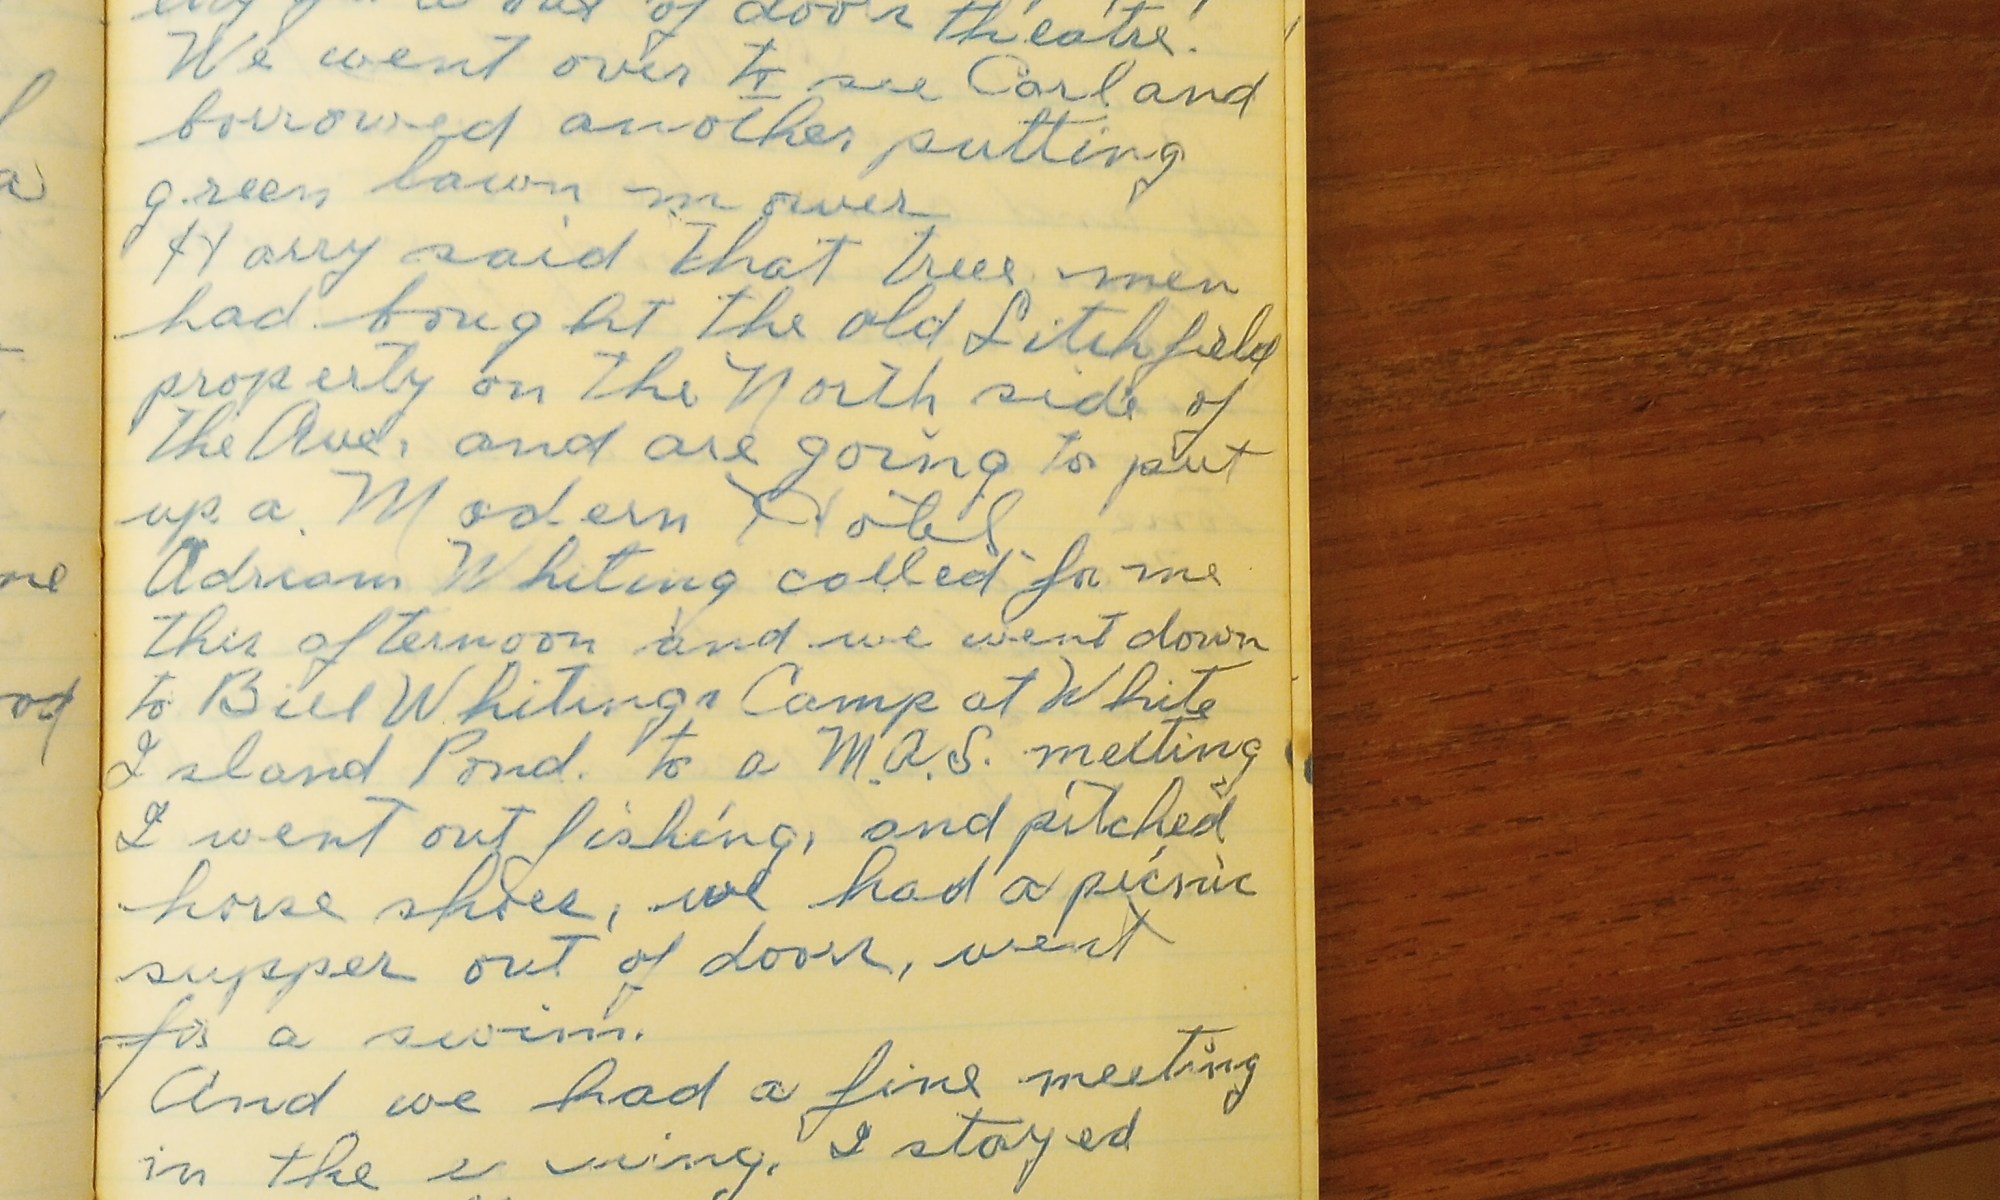 of door theatre.
We went over to see Carl and
borrowed another putting
green lawn mower
Harry said that tree men
had bought the old Litchfield
property on the North side of
the Ave. and are going to put
up a Modern Hotel
Adriam Whiting called for me
this afternoon and we went down
to Bill Whitings Camp at White
Island Pond. to a M.A.S. meeting
I went out fishing, and pitched
horse shoes, we had a picnic
supper out of doors, went
for a swim.
And we had a fine meeting
in the evening. I stayed